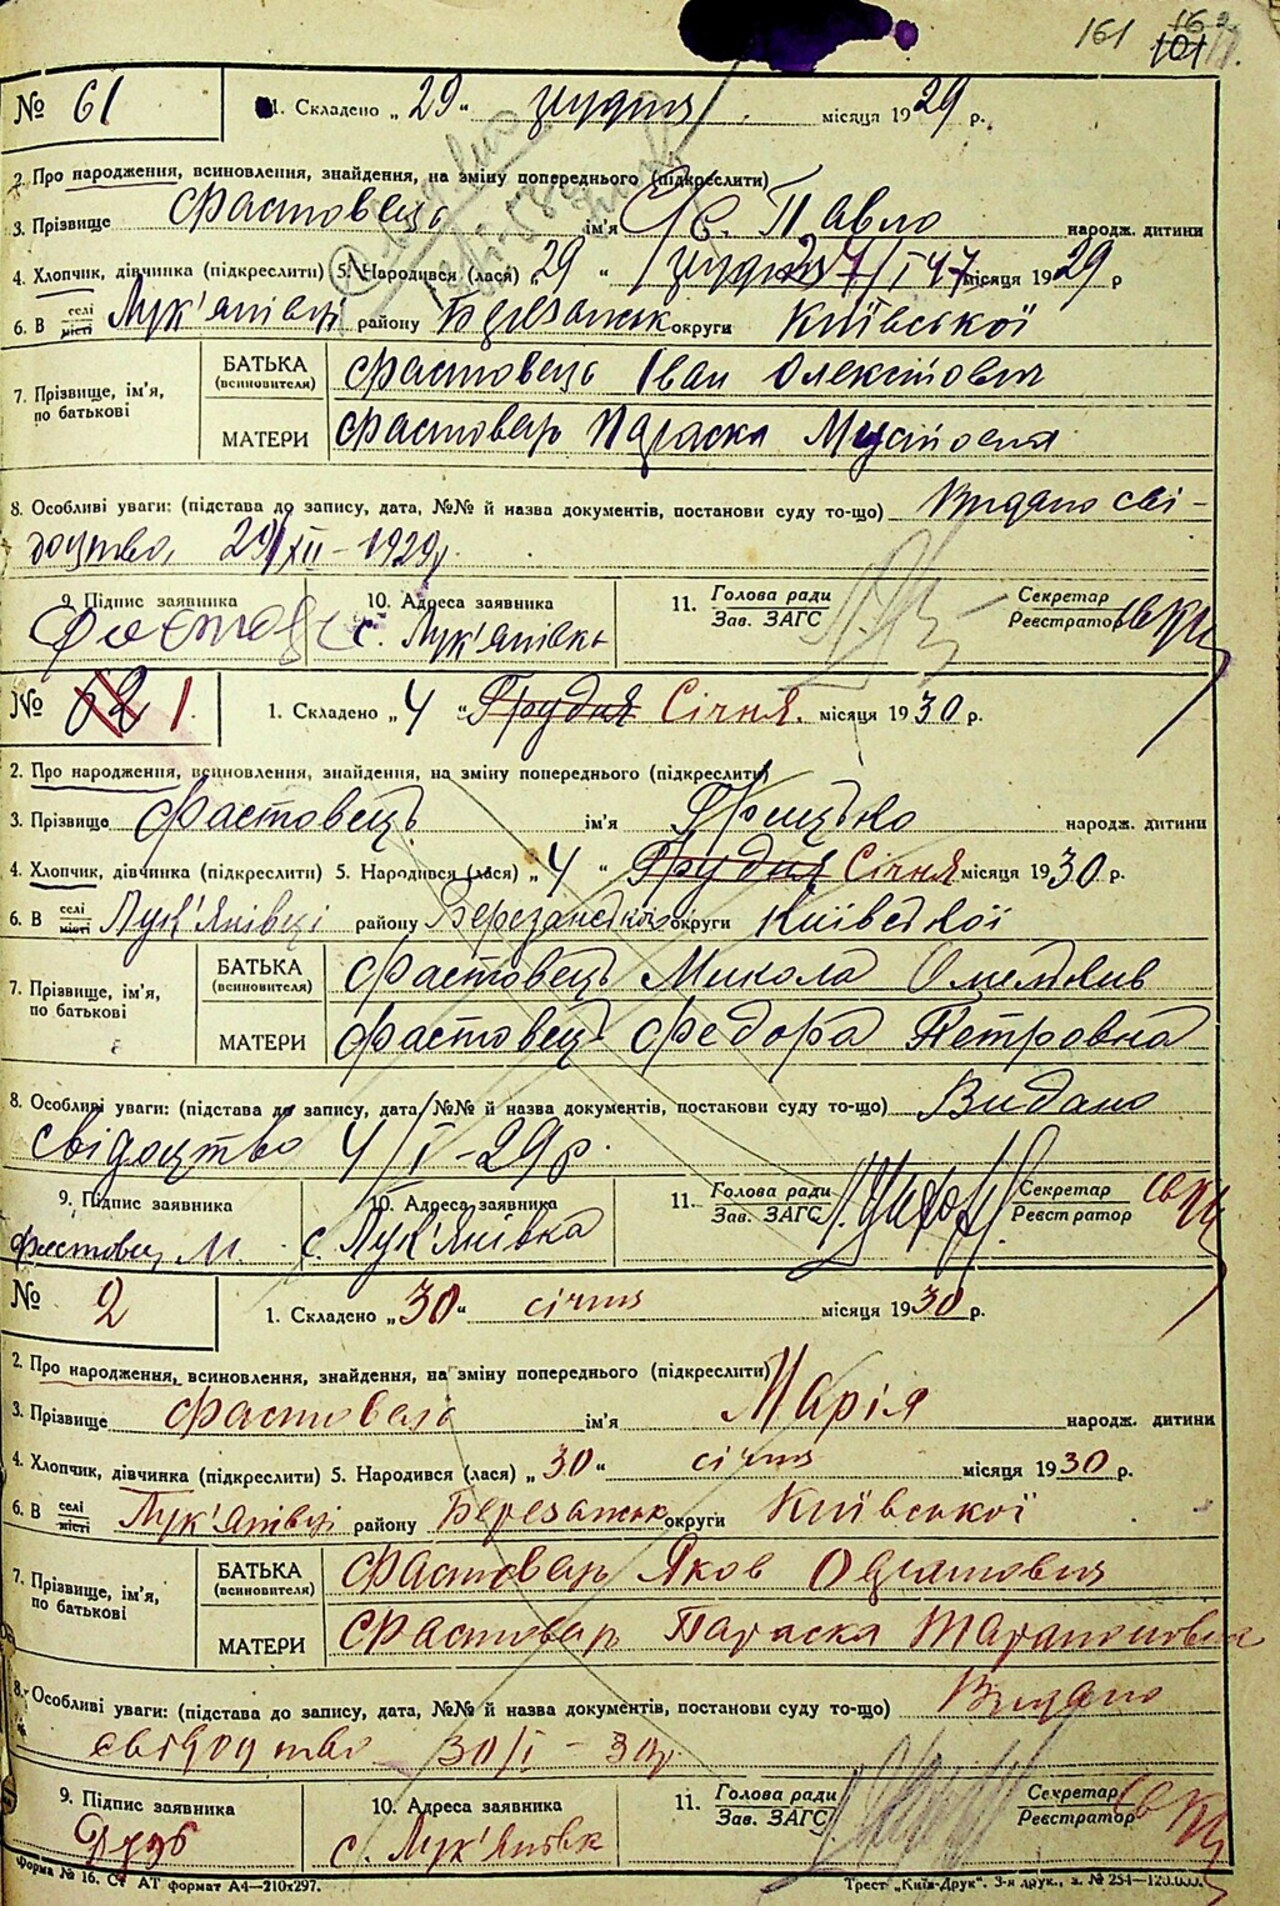 161
101
№ 61
1. Складено „ 29 “ грудня місяця 1929 р.
2. Про народження, всиновлення, знайдення, на зміну попереднього (підкреслити)
3. Прізвище Фастовець ім'я Павло народж. дитини
4. Хлопчик, дівчинка (підкреслити) 5. Народився (лася) „ 29 “ грудня місяця 1929 р
6. В селі/місті Лук'янівці району Березанськ округи Київської
7. Прізвище, ім'я, по батькові
БАТЬКА (всиновителя) Фастовець Іван Олексійович
МАТЕРИ Фастовець Параска Мусіївна
8. Особливі уваги: (підстава до запису, дата, №№ й назва документів, постанови суду то-що) Видано сві-
доцтво, 29/XII - 1929р.
9. Підпис заявника 10. Адреса заявника 11. Голова ради / Зав. ЗАГС Секретар / Реєстратор
с. Лук'янівка
№ 62 1.
1. Складено „ 4 “ Грудня Січня. місяця 1930 р.
2. Про народження, всиновлення, знайдення, на зміну попереднього (підкреслити)
3. Прізвище Фастовець ім'я Грицько народж. дитини
4. Хлопчик, дівчинка (підкреслити) 5. Народився (лася) „ 4 “ Грудня Січня місяця 1930 р.
6. В селі/місті Лук'янівці району Березанської округи Київської
7. Прізвище, ім'я, по батькові
БАТЬКА (всиновителя) Фастовець Микола
МАТЕРИ Фастовець Федора Петровна
8. Особливі уваги: (підстава до запису, дата, №№ й назва документів, постакови суду то-що) Видано
свідоцтво 4/I - 29р.
9. Підпис заявника 10. Адреса заявника 11. Голова ради / Зав. ЗАГС Секретар / Реєстратор
Фастовец М. с. Лук'янівка
№ 2
1. Складено „ 30 “ січня місяця 1930 р.
2. Про народження, всиновлення, знайдення, на зміну попереднього (підкреслити)
3. Прізвище Фастовець ім'я Марія народж. дитини
4. Хлопчик, дівчинка (підкреслити) 5. Народився (лася) „ 30 “ січня місяця 1930 р.
6. В селі/місті Лук'янівці району Березанськ округи Київської
7. Прізвище, ім'я, по батькові
БАТЬКА (всиновителя) Фастовець Яков
МАТЕРИ Фастовець Параска
8. Особливі уваги: (підстава до запису, дата, №№ й назва документів, постанови суду то-що) Видано
свідоцтво 30/I - 30р.
9. Підпис заявника 10. Адреса заявника 11. Голова ради / Зав. ЗАГС Секретар / Реєстратор
с. Лук'янівк
Форма № 16. Ст АТ формат А4—210x297.
Трест „Київ-Друк“. 3-я друк., з. № 254—120.000.